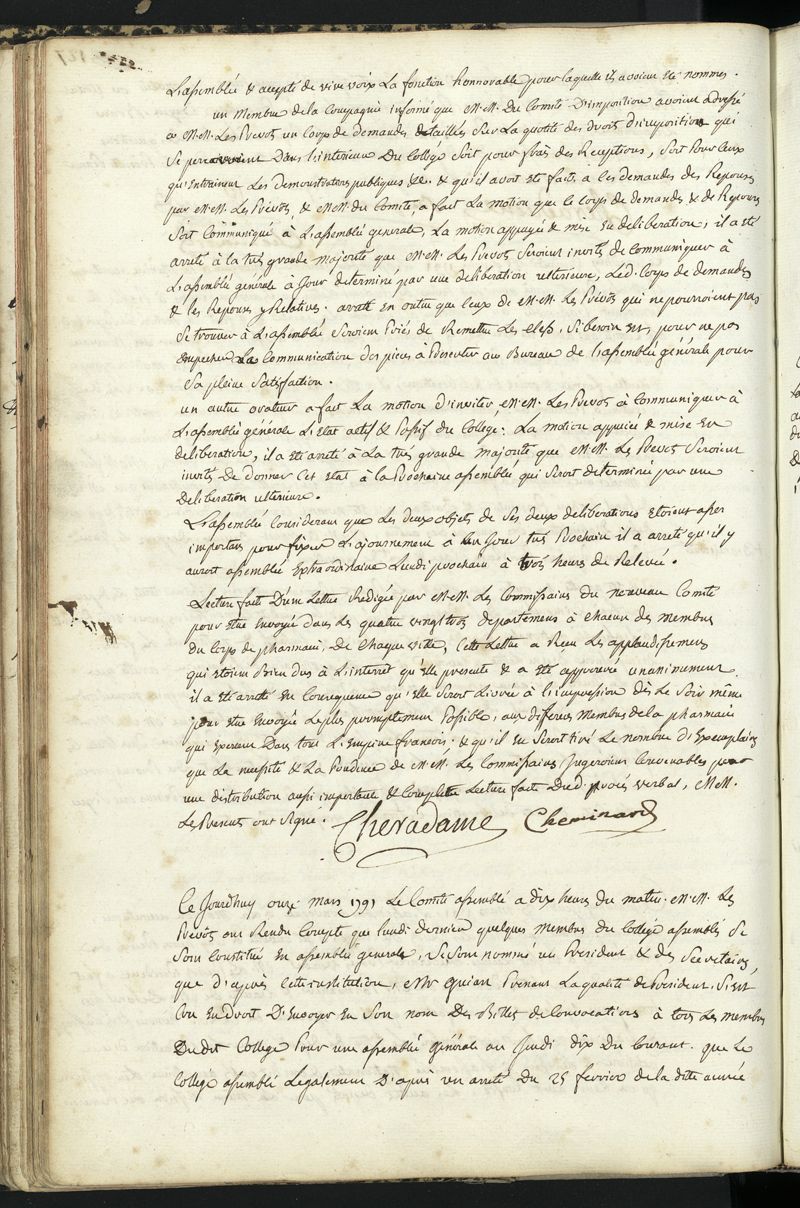 L'assemblée & accepté de vive voix La fonction honnorable pour laquelle ils avoient été nommés.
un Membre de la Compagnie informé que M.M. Du Comité D'imposition avoient adressé
a M.M. Les Prevots un Corps de demandes detaillés Sur La quotité des droits d'imposition qui
Se percevoient Dans l'interieur Du College Soit pour frais des Receptions, Soit Pour Ceux
qu'entrainent Les Demonstrations publiques &c. & qu'il avoit été fait a les demandes des Reponses
par M.M. Les Prévots, & M.M. du Comité, a fait La motion que le corps de demandes & de Reponses
Soit Communiqué à L'assemblé generale, La motion appuyée & mise En deliberation, il a été
arreté à la très grande majorité que M.M. Les Prevots Seroient invités de Communiquer à
L'assemblé générale à Jour determiné par une deliberation ulterieure, Led. Corps de demandes
& les Reponses y Relatives. arreté En outre que Ceux de M.M. Les Prévots qui ne pourroient pas
Se trouver à L'assemblé Seroient Priés de Remettre Les Clefs, Si besoin est, pour ne pas
empecher La Communication des pieces à Presenter au Bureau de L'assemblé générale pour
Sa pleine Satisfaction.
un autre orateur a fait La motion d'inviter M.M. Les Prevots à Communiquer à
L'assemblé générale L'Etat actif & Passif du College: La motion appuiée & mise En
deliberation, il a été arreté à La très grande majorité que M.M. Les Prevots Seroient
invités De donner Cet Etat à la Prochaine assemblée qui Seroit determiné par une
Deliberation ulterieure.
L'assemblée Considerant que Les deux objets de Ses deux deliberations etoient assez
importans pour fixer L'ajournement à un Jour très Prochain il a arreté qu'il y
auroit assemblée Extraordinaire Lundi prochain à trois heures de Relevée.
Lecture fait D'une Lettre Redigée par M.M. Les Commissaires du nouveau Comité
pour etre Envoyée dans Les quatre vingt trois departemens à chacun des membres
du Corps de pharmacie, De Chaque ville, Cette Lettre a Reçu Les applaudissemens
qui etoient Bien dus à L'interret qu'elle presente & a été approuvée unanimement.
il a été arreté En Consequence qu'elle Seroit Livrée à l'impression dès Le Soir même
pour etre Envoyée Le plus promptement Possible, aux differens Membres de la pharmacie
qui Exercent Dans tout L'Empire francois: & qu'il En Seroit tiré Le nombre d'Exemplaires
que La necessité & La Prudence de M.M. Les Commissaires Jugeroient Convenables pour
une distribution aussi importante & Complette Lecture faite Dud. procès verbal, M.M.
Les Presents ont Signé. Cheradame Cheminard
Ce Jourdhuy onze mars 1791 Le Comité assemblé a dix heures du matin. M.M. Les
Prevots ont Rendu Compte que Lundi dernier quelques Membres du College assemblés Se
Sont Constitué En assemblé generale, Se Sont nommé un President & des Secretaires,
que d'après Cette institution, Mr Quian Prenant La qualité de President, S'est
Cru En droit D'Envoyer En Son nom Des Billets de Convocations à tous Les membres
Du dit College Pour une assemblé générale au Jeudi dix Du Courant. que Le
College assemblé Legalement D'après un arreté Du 25 fevrier de la dite année